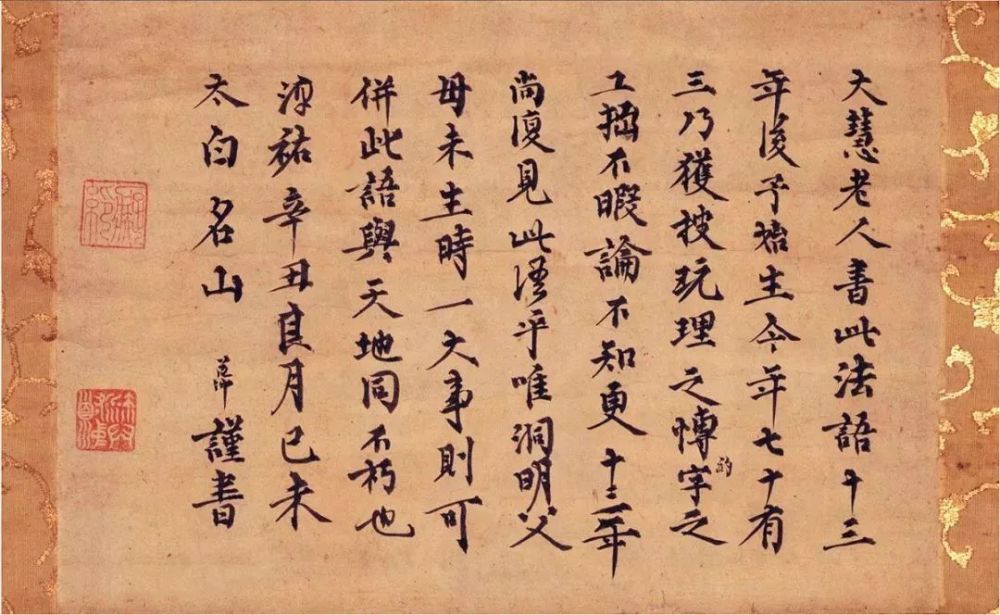 大慧老人書此法語十三
年後予始生今年七十有
三乃獲披玩理之愽的字之
工拙不暇論不知更十三年
尚復見此語乎唯洞明父
母未生時一大事則可
併此語與天地同不朽也
淳祐辛丑良月己未
太白名山 道冲 謹書